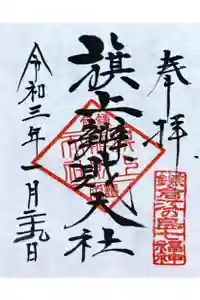 奉拝
旗上辨財天社
令和三年一月二十九日
鎌倉江の島七福神